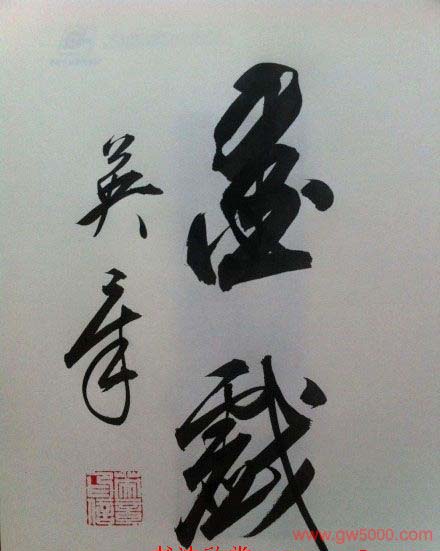 墨戲
英章
www.gw5000.com